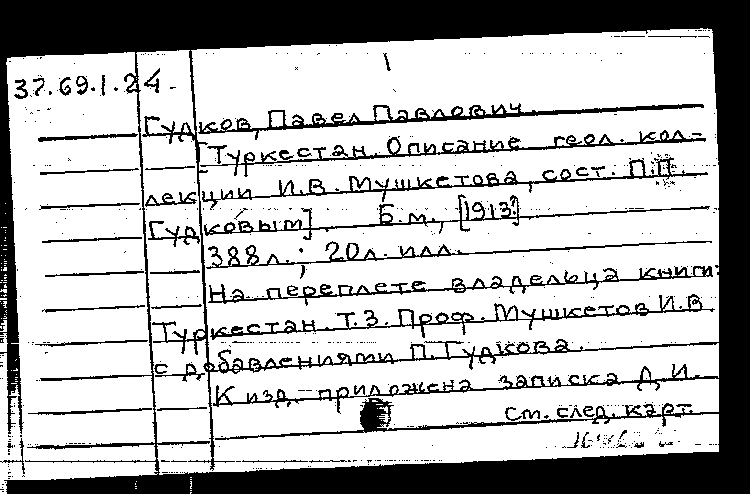 1
37.69.1.24.
Гудков, Павел Павлович.
[Туркестан. Описание геол. кол-
лекции И.В. Мушкетова, сост. П.П.
Гудковым]. Б.м., [1913?]
388л.; 20л. илл.
На переплете владельца книги:
Туркестан. Т.3. Проф. Мушкетов И.В.
с добавлениями П. Гудкова.
К изд. приложена записка Д.И.
См. след. карт.